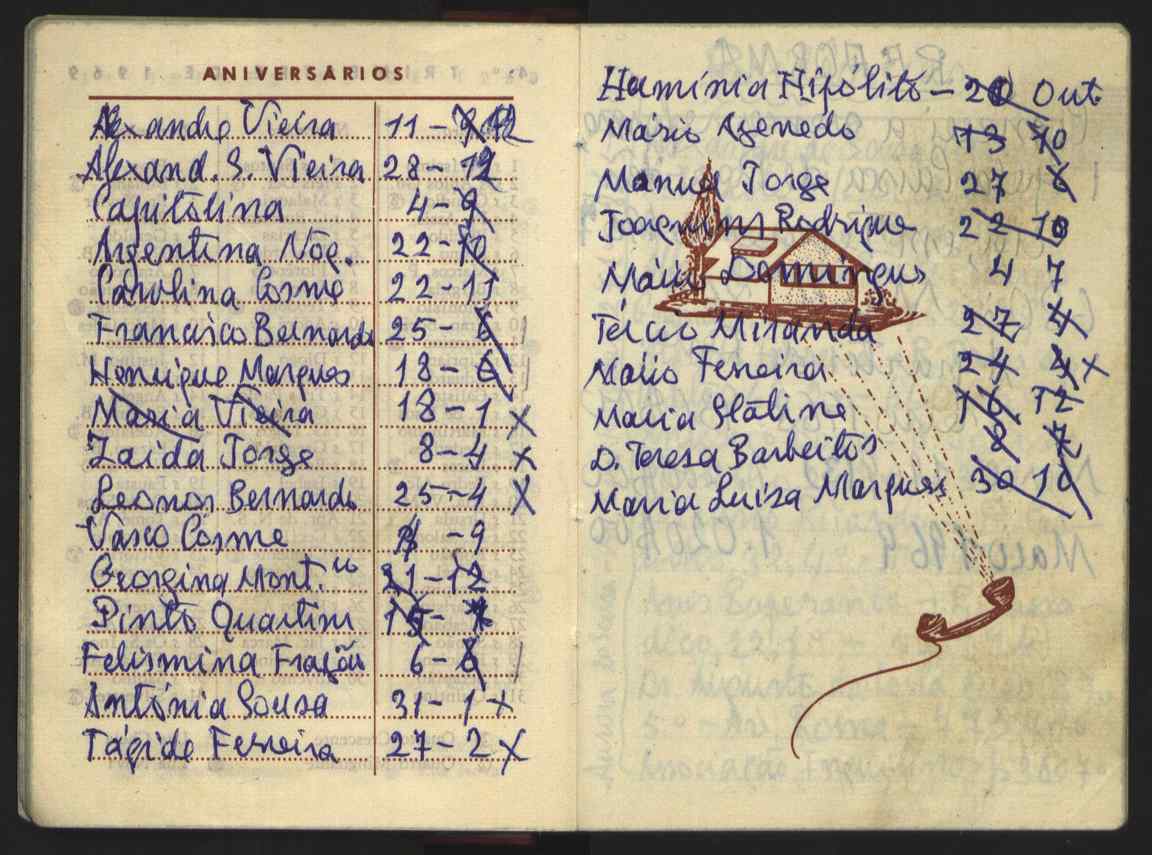 ANIVERSÁRIOS
Alexandre Vieira 11 -
Alexand. S. Vieira 28 - 12
Capitolina 4 - 9
Argentina Nog. 22 - 10
Carolina Cosme 22 - 11
Francisco Bernardo 25 - 6
Henrique Marques 18 - 6
Maria Vieira 18 - 1 x
Zaida Jorge 8 - 4 x
Leonor Bernardo 25 - 4 x
Vasco Cosme - 9
Georgina Mont.ro 21 - 12
Pinto Quartim 15 -
Felismina Frazão 6 - 8
Antónia Sousa 31 - 1 x
Tágide Ferreira 27 - 2 x
Hamínia Hipólito - 20 Out
Mário Azenedo 13 10
Manuel Jorge 27 6
Joaquim Rodrigue 22 10
Mário Domingues 4 7
Tércio Miranda 27 4
Mário Ferreira 24 4 x
Maria Státine 16 12
D. Teresa Barbeitos 9 7
Maria Luiza Marques 30 10